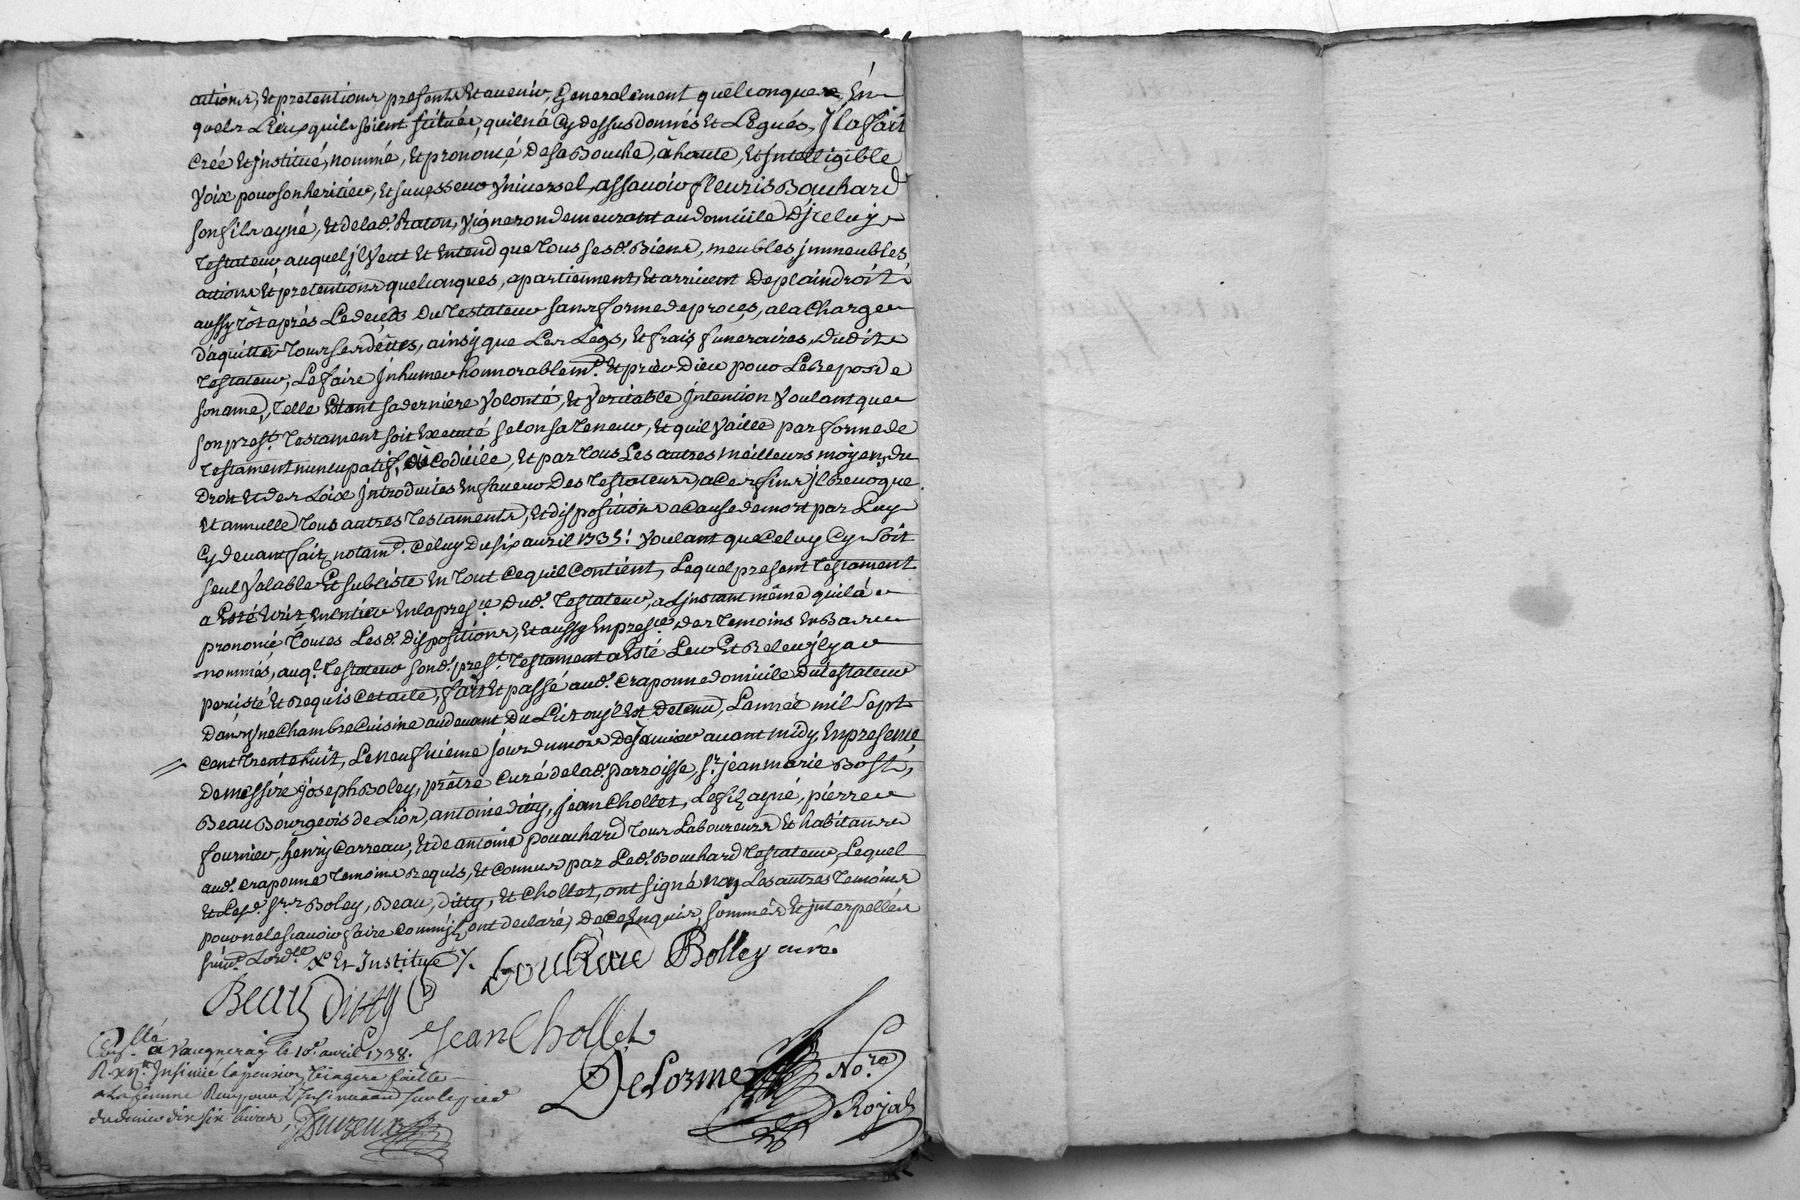 actions, et pretentions presents et avenir, Generalement quelconques, En
quels Lieux quils soient scitués, quil n'a Cy dessus donnés et Legués, Jl a fait
Créé et jnstitué, nommé, et prononcé de sa Bouche, a haute, et Jntelligible
Voix pour son heritier, et successeur Vniversel, assavoir fleuris Bouchard
son fils ayné, et de lad. Raton, Vigneron demeurant au domicile d'jceluy
Testateur, auquel jl Veut et Entend que tous sesd. Biens, meubles, jmmeubles,
actions et pretentions quelconques, apartiennent, et arrivent de plain droit
aussy tôt aprés Le deceds du Testateur sans forme de proces, a la Charge
d'aquitter tous ses dettes, ainsy que Les Legs, et frais funeraires, dudit
Testateur, Le faire Jnhumer honnorablemt. et prier Dieu pour Le Repos de
son ame, Telle Etant sa derniere Volonté, et Veritable Jntention Voulant que
son prest. Testament soit Executé selon sa Teneur, et quil Vaille par forme de
Testament nuncupatif, Codicile, et par tous Les autres meilleurs moyens du
Droit et des Loix Jntroduites En faveur Des Testateurs, a Ces fins jl Revoque
et annulle tous autres Testaments, et dispositions a Cause de mort par Luy
Cy devant fait, notamt. Celuy du six avril 1735: Voulant que Celuy Cy soit
seul Valable et subsiste En tout Ce quil Contient, Lequel present Testament
a Esté Ecrit En Entier En la presce. dud. Testateur, a L'jnstant même quil a
prononcé toutes Lesd. dispositions, et aussy En presce. des Temoins En Bas
nommés, auql. Testateur sond. prest. Testament a Esté Leu et Releu, jl y a
persisté et Requis cet acte, fait et passé aud. Craponne domicile du testateur
dans Vne Chambre Cuisine au devant du Lit ou jl Est detenu, L'année mil sept
cent trente huit, Le neufvieme jour du mois de janvier avant midy, En presence
de messire joseph Boley, prêtre Curé de lad. parroisse, sr. jean marie Bost,
Beau Bourgeois de Lion, antoine ditty, jean Chollet, Le fils ayné, pierre
fournier, henry Carreau, et de antoine pouchard tous Laboureurs et habitans
aud. Craponne temoins Requis, et Connus par Led. Bouchard Testateur, Lequel
et Lesd. srs. Boley, Beau, ditty, et Chollet, ont signé non Les autres temoins
pour ne le scavoir faire Comme jls ont declaré, de Ce Enquis, sommés et jnterpellés
suivt. L'ordce. et Jnstitué
Bouchard Bolley curé
Beau Ditty
Jean Chollet
Delorme No.re
Royal
Conllé. a Vaugneray le 10e. avril 1738.
R. Insinué la pension Viagere faitte
a La femme
du denier dix six livres,